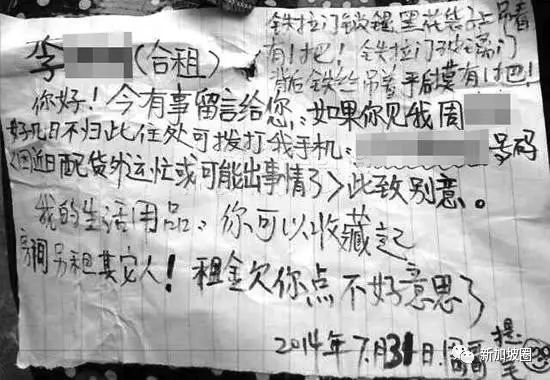 铁拉门锁匙黑花袋子上吊着
有1把！铁拉门
背后铁丝吊着手后摸有1把！
李 (合租)
你好！今有事留言给您：如果你见我周
好几日不归此住处可拨打我手机： 号码
<因近日配货外运忙或可能出事情了>此致别意。
我的生活用品：你可以收藏起
房间另租其它人！租金欠你点不好意思了
2014年7月31日！周
提笔
新加坡圈